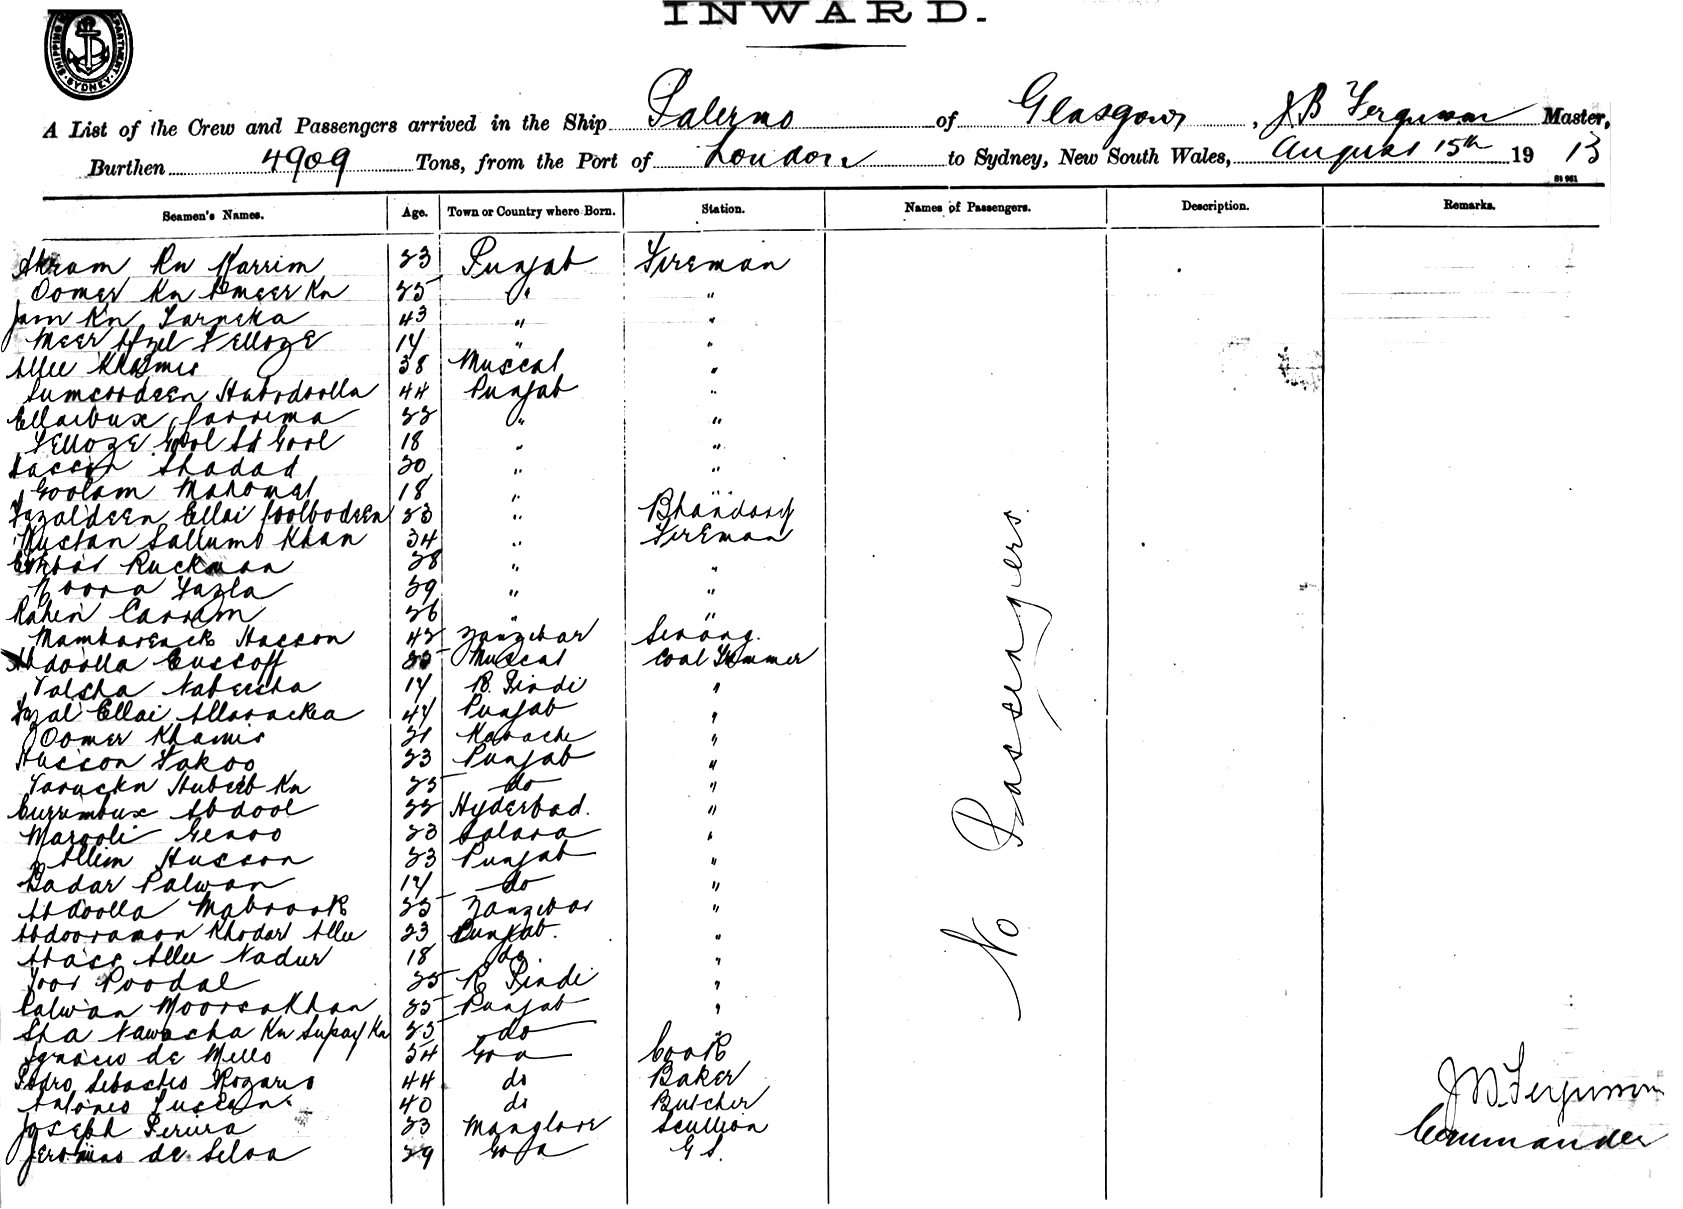 INWARD.
SHIPPING DEPARTMENT SYDNEY
A List of the Crew and Passengers arrived in the Ship Palermo of Glasgow, J B Ferguson Master,
Burthen 4909 Tons, from the Port of London to Sydney, New South Wales, August 15th 1913
Seamen's Names. Age. Town or Country where Born. Station. Names of Passengers. Description. Remarks.
Akram Kn Karrim 23 Punjab Fireman
Oomer Kn Ameer Kn 25 " "
Jam Kn 43 " "
Meer Afzel Ferroze 17 " "
Allee Khamis 38 Muscat "
Sumeordeen 44 Punjab "
Ellaibux 22 " "
Ferroze Gool Sd Gool 18 " "
Hasson Shadad 20 " "
Goolam Mahomet 18 " "
Fazaldeen Ellai 23 " Bhandary
Sallums Khan 34 " Fireman
Ruckman 28 " "
Noora Fazla 29 " "
Rahen Carram 26 " "
Mambareack Hasson 42 Zanzibar Serang.
Abdoolla Eussoff 25 Muscat Coal Trimmer
Nabeesha 17 R. Pindi "
Fazal Ellai Allarackea 47 Punjab "
Oomer Khamis 21 Karachi "
Husson Fakoo 23 Punjab "
Hubeeb Kn 25 do "
Currimbux Abdool 22 Hyderbad. "
Genoo 23 "
Allim Husson 23 Punjab "
Badar Palwan 17 do "
Abdoolla Mabrook 25 Zanzibar "
Abdooramon Khodar Allee 23 Punjab. "
Abass Allee Nadur 18 do "
Noor Poodal 25 R Pindi "
Palwan Moorsakhan 25 Punjab "
Sha Nawacha Kn 25 do "
Ignacio de Mello 54 Goa Cook
Pedro Sebastio Rozario 44 do Baker
Antonio 40 do Butcher
Joseph Periera 23 Manglore Scullion
Jeronimo de Selva 29 Goa G S.
No Passengers
J B. Ferguson
Commander